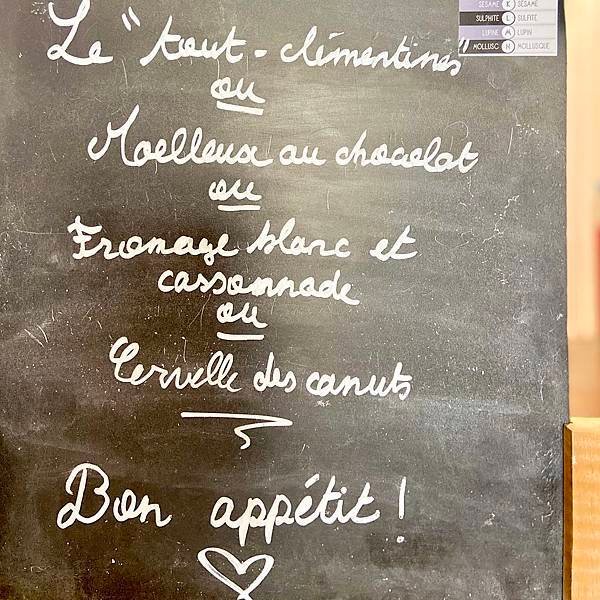 SESAME K SÉSAME
SULPHITE L SULFITE
LUPINE M LUPIN
MOLLUSC N MOLLUSQUE
Le "tout-clémentines"
ou
Moelleux au chocolat
ou
Fromage blanc et
cassonnade
ou
Cervelle des canuts
Bon appétit !